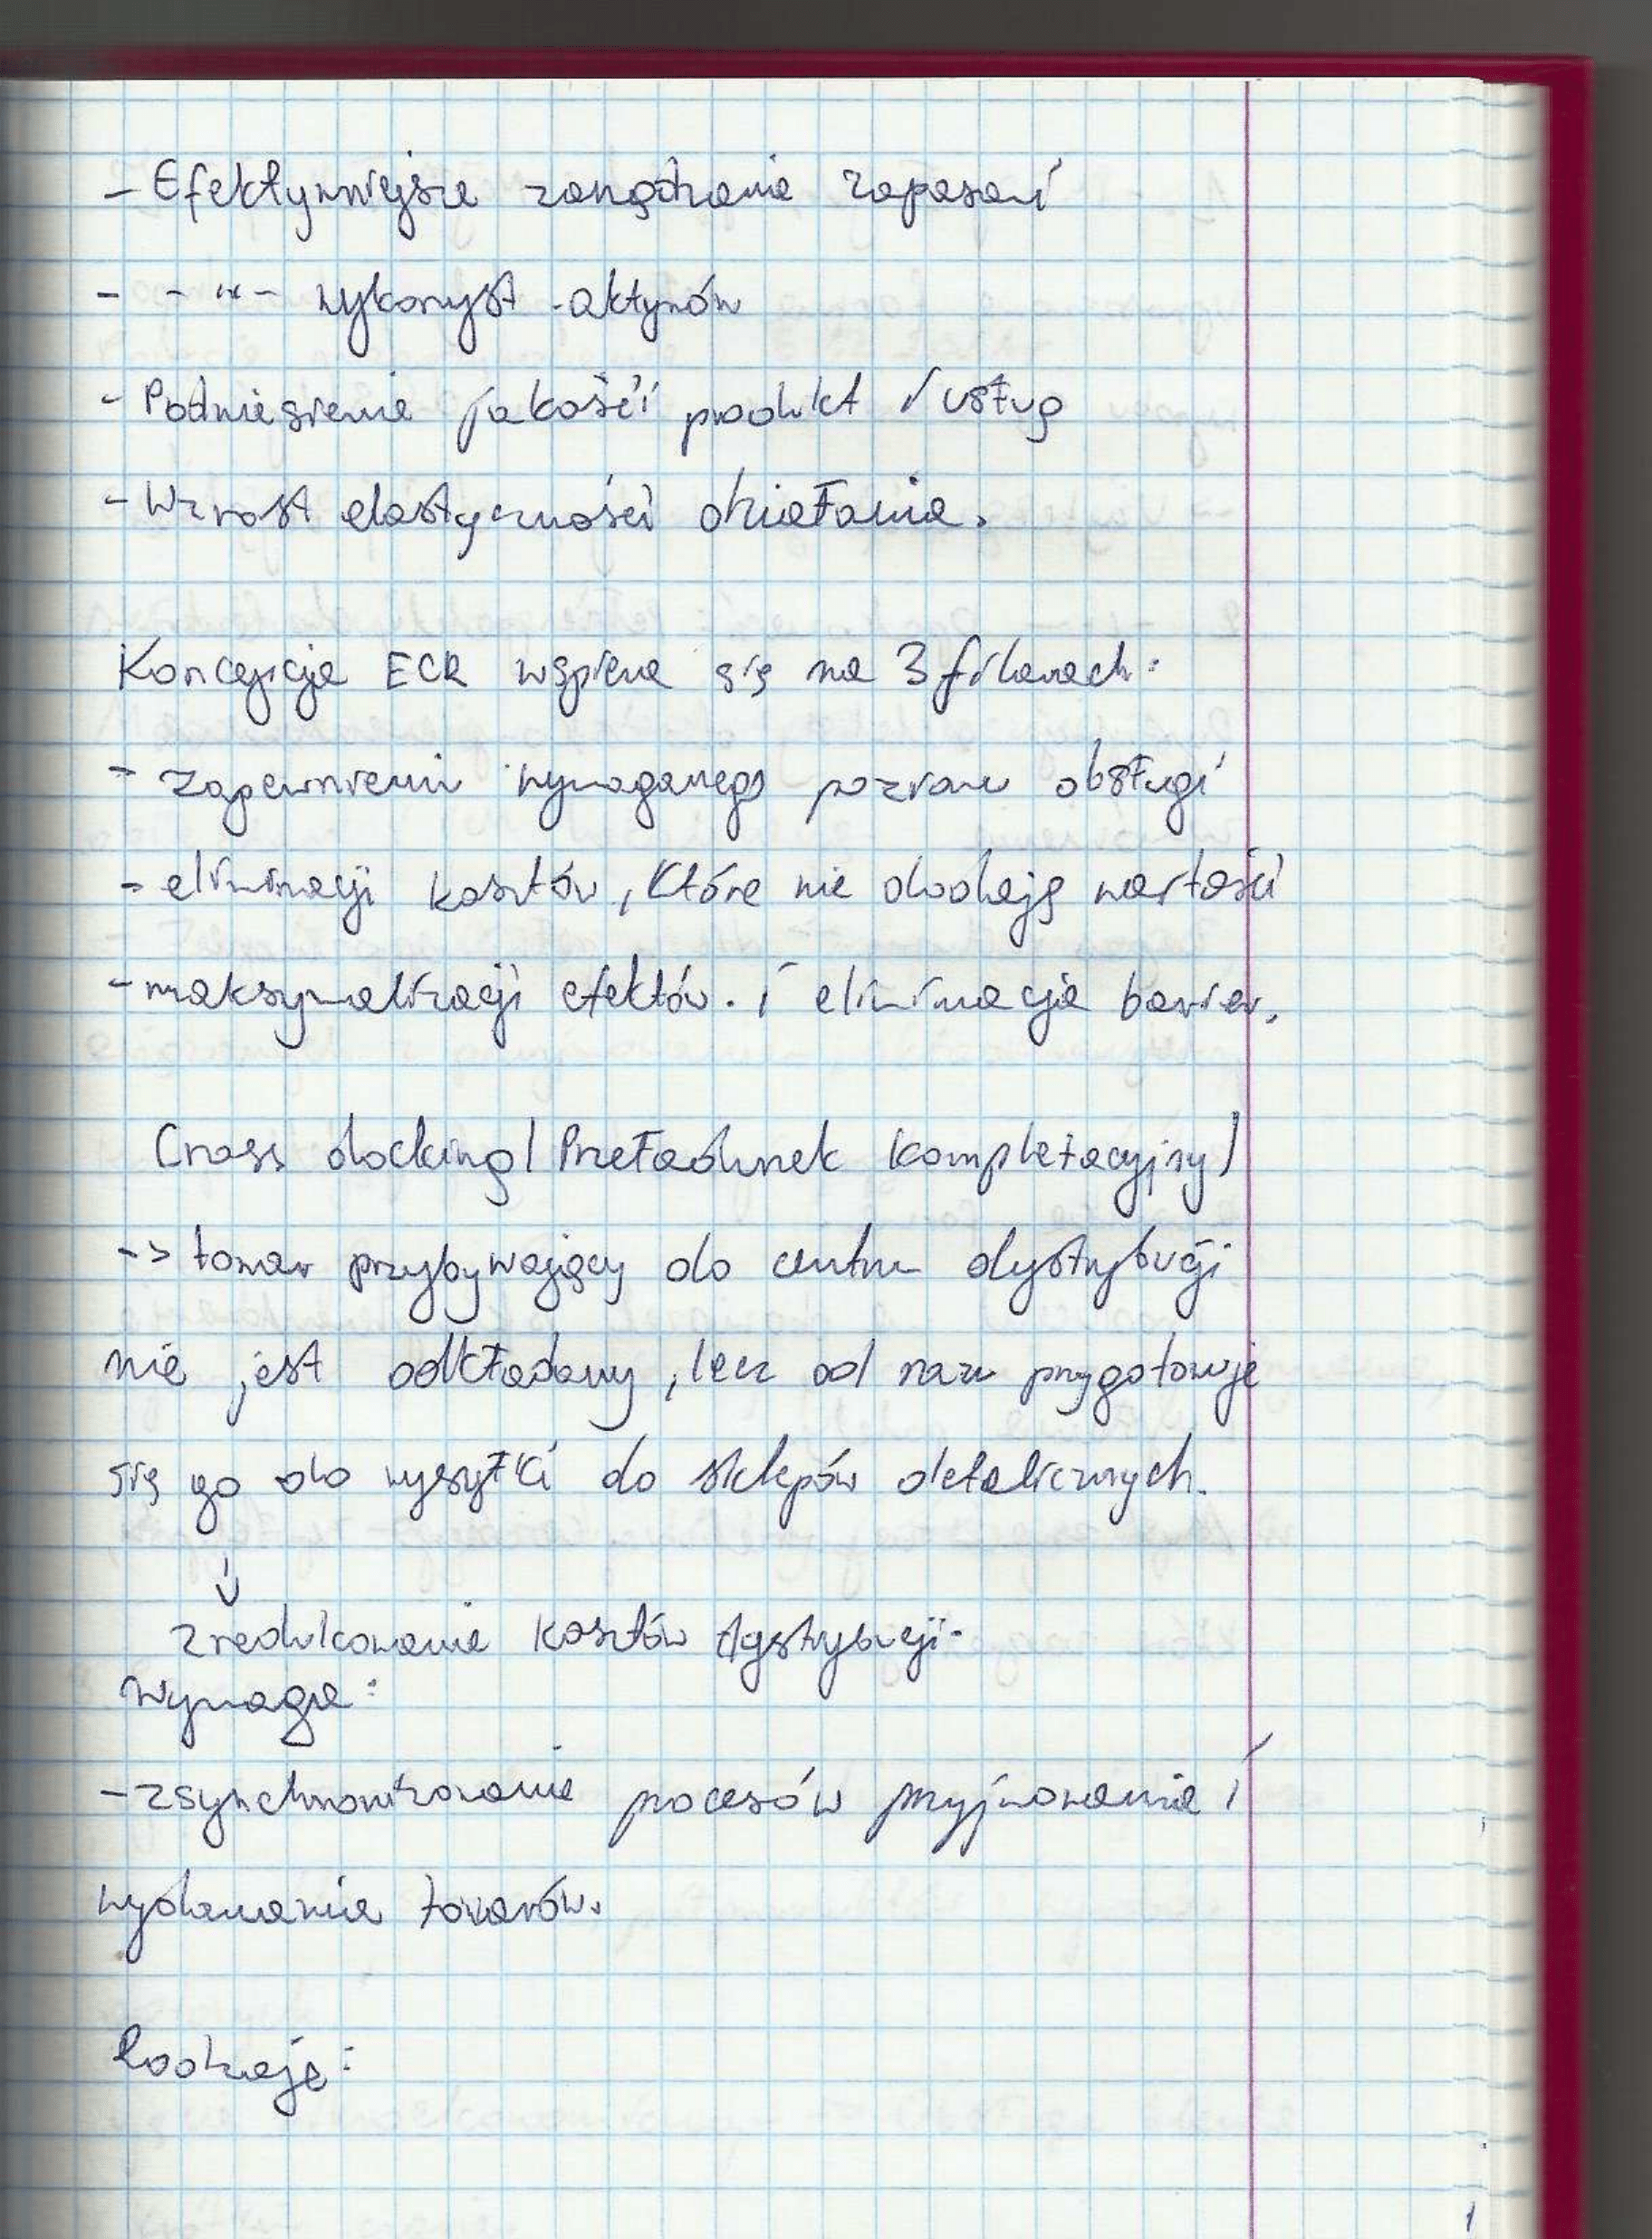 - Efektywniejsze zarządzanie zapasami
- - "- wykorzyst. aktywów
- Podniesienie jakości produkt / usług
- Wzrost elastyczności działania.
Koncepcja ECR wspiera się na 3 filarach:
- zapewnieniu wymaganego poziomu obsługi
- eliminacji kosztów, które nie dodają wartości
- maksymalizacji efektów. i eliminacja barier.
Cross docking / Przeładunek kompletacyjny /
-> towar przybywający do centrum dystrybucji
nie jest odkładany, lecz od razu przygotowuje
się go do wysyłki do sklepów detalicznych.
↓
zredukowanie kosztów dystrybucji.
Wymaga:
- zsynchronizowanie procesów przyjmowania i
wydawania towarów.
Rodzaje: